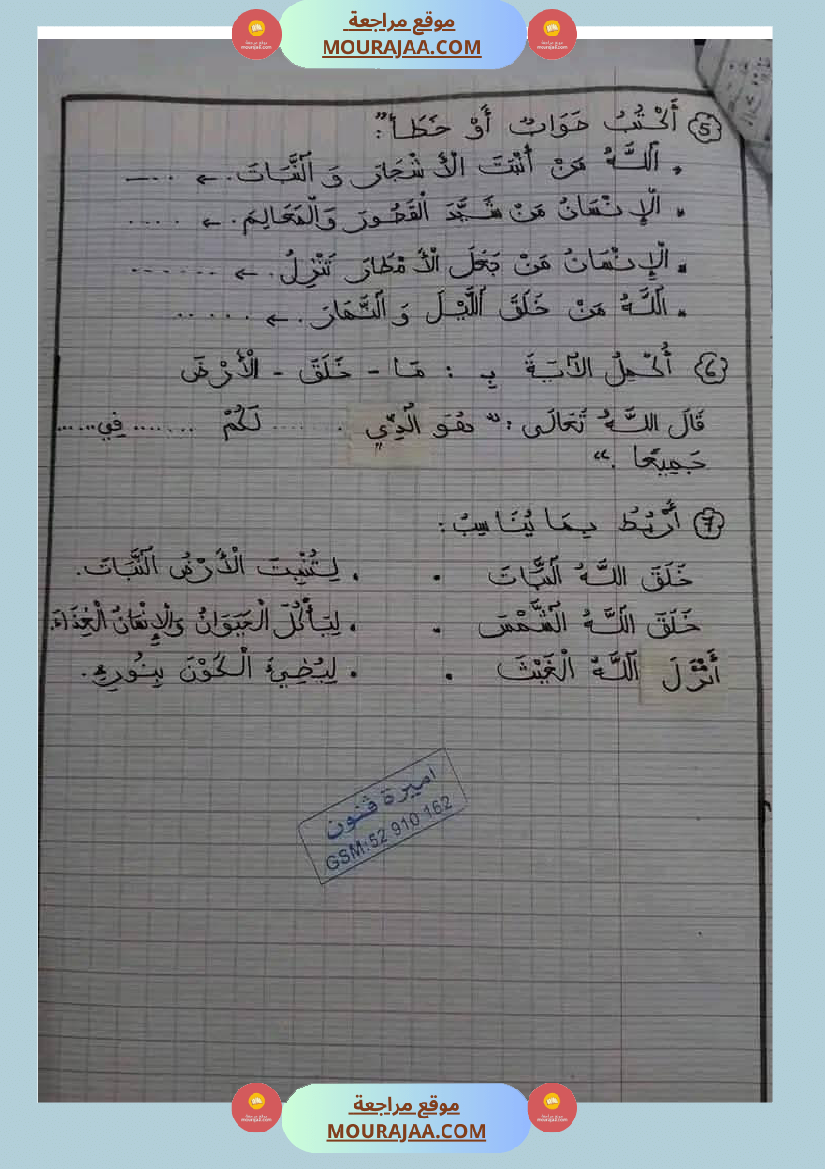 موقع مراجعة
MOURAJAA.COM
5 أَكْتُبُ صَوَابٌ أَوْ خَطَأٌ":
. اَللَّهُ مَنْ أَنْبَتَ الْأَشْجَارَ وَ النَّبَاتَ. ← .....
. الْإِنْسَانُ مَنْ شَيَّدَ الْقُصُورَ وَالْمَعَالِمَ. ← .....
. الْإِنْسَانُ مَنْ جَعَلَ الْأَمْطَارَ تَنْزِلُ. ← ......
. اَللَّهُ مَنْ خَلَقَ اللَّيْلَ وَ النَّهَارَ. ← ......
6 أُكْمِلُ الْآيَةَ بِـ : مَا - خَلَقَ - الْأَرْضَ
قَالَ اللَّهُ تَعَالَى : "هُوَ الَّذِي ...... لَكُمْ ....... فِي......
جَمِيعًا ."
7 أَرْبُطُ بِمَا يُنَاسِبُ:
خَلَقَ اللَّهُ النَّبَاتَ . . لِتُنْبِتَ الْأَرْضُ النَّبَاتَ.
خَلَقَ اللَّهُ الشَّمْسَ . . لِيَأْكُلَ الْحَيَوَانُ وَالْإِنْسَانُ الْغِذَاءَ.
أَنْزَلَ اللَّهُ الْغَيْثَ . . لِيُضِيءَ الْكَوْنَ بِنُورِهِ.
اميرة فنون
GSM:52 910 162
موقع مراجعة
MOURAJAA.COM